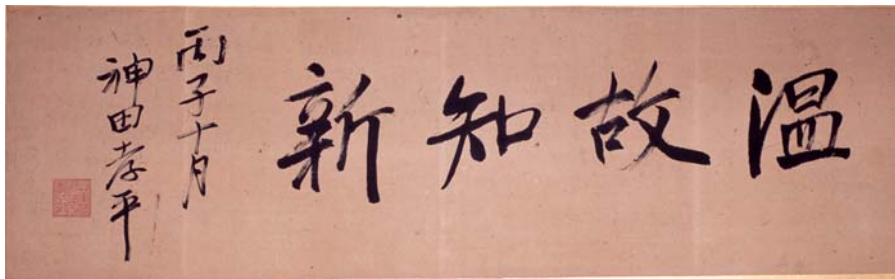 温故知新
丙子十月
神田孝平